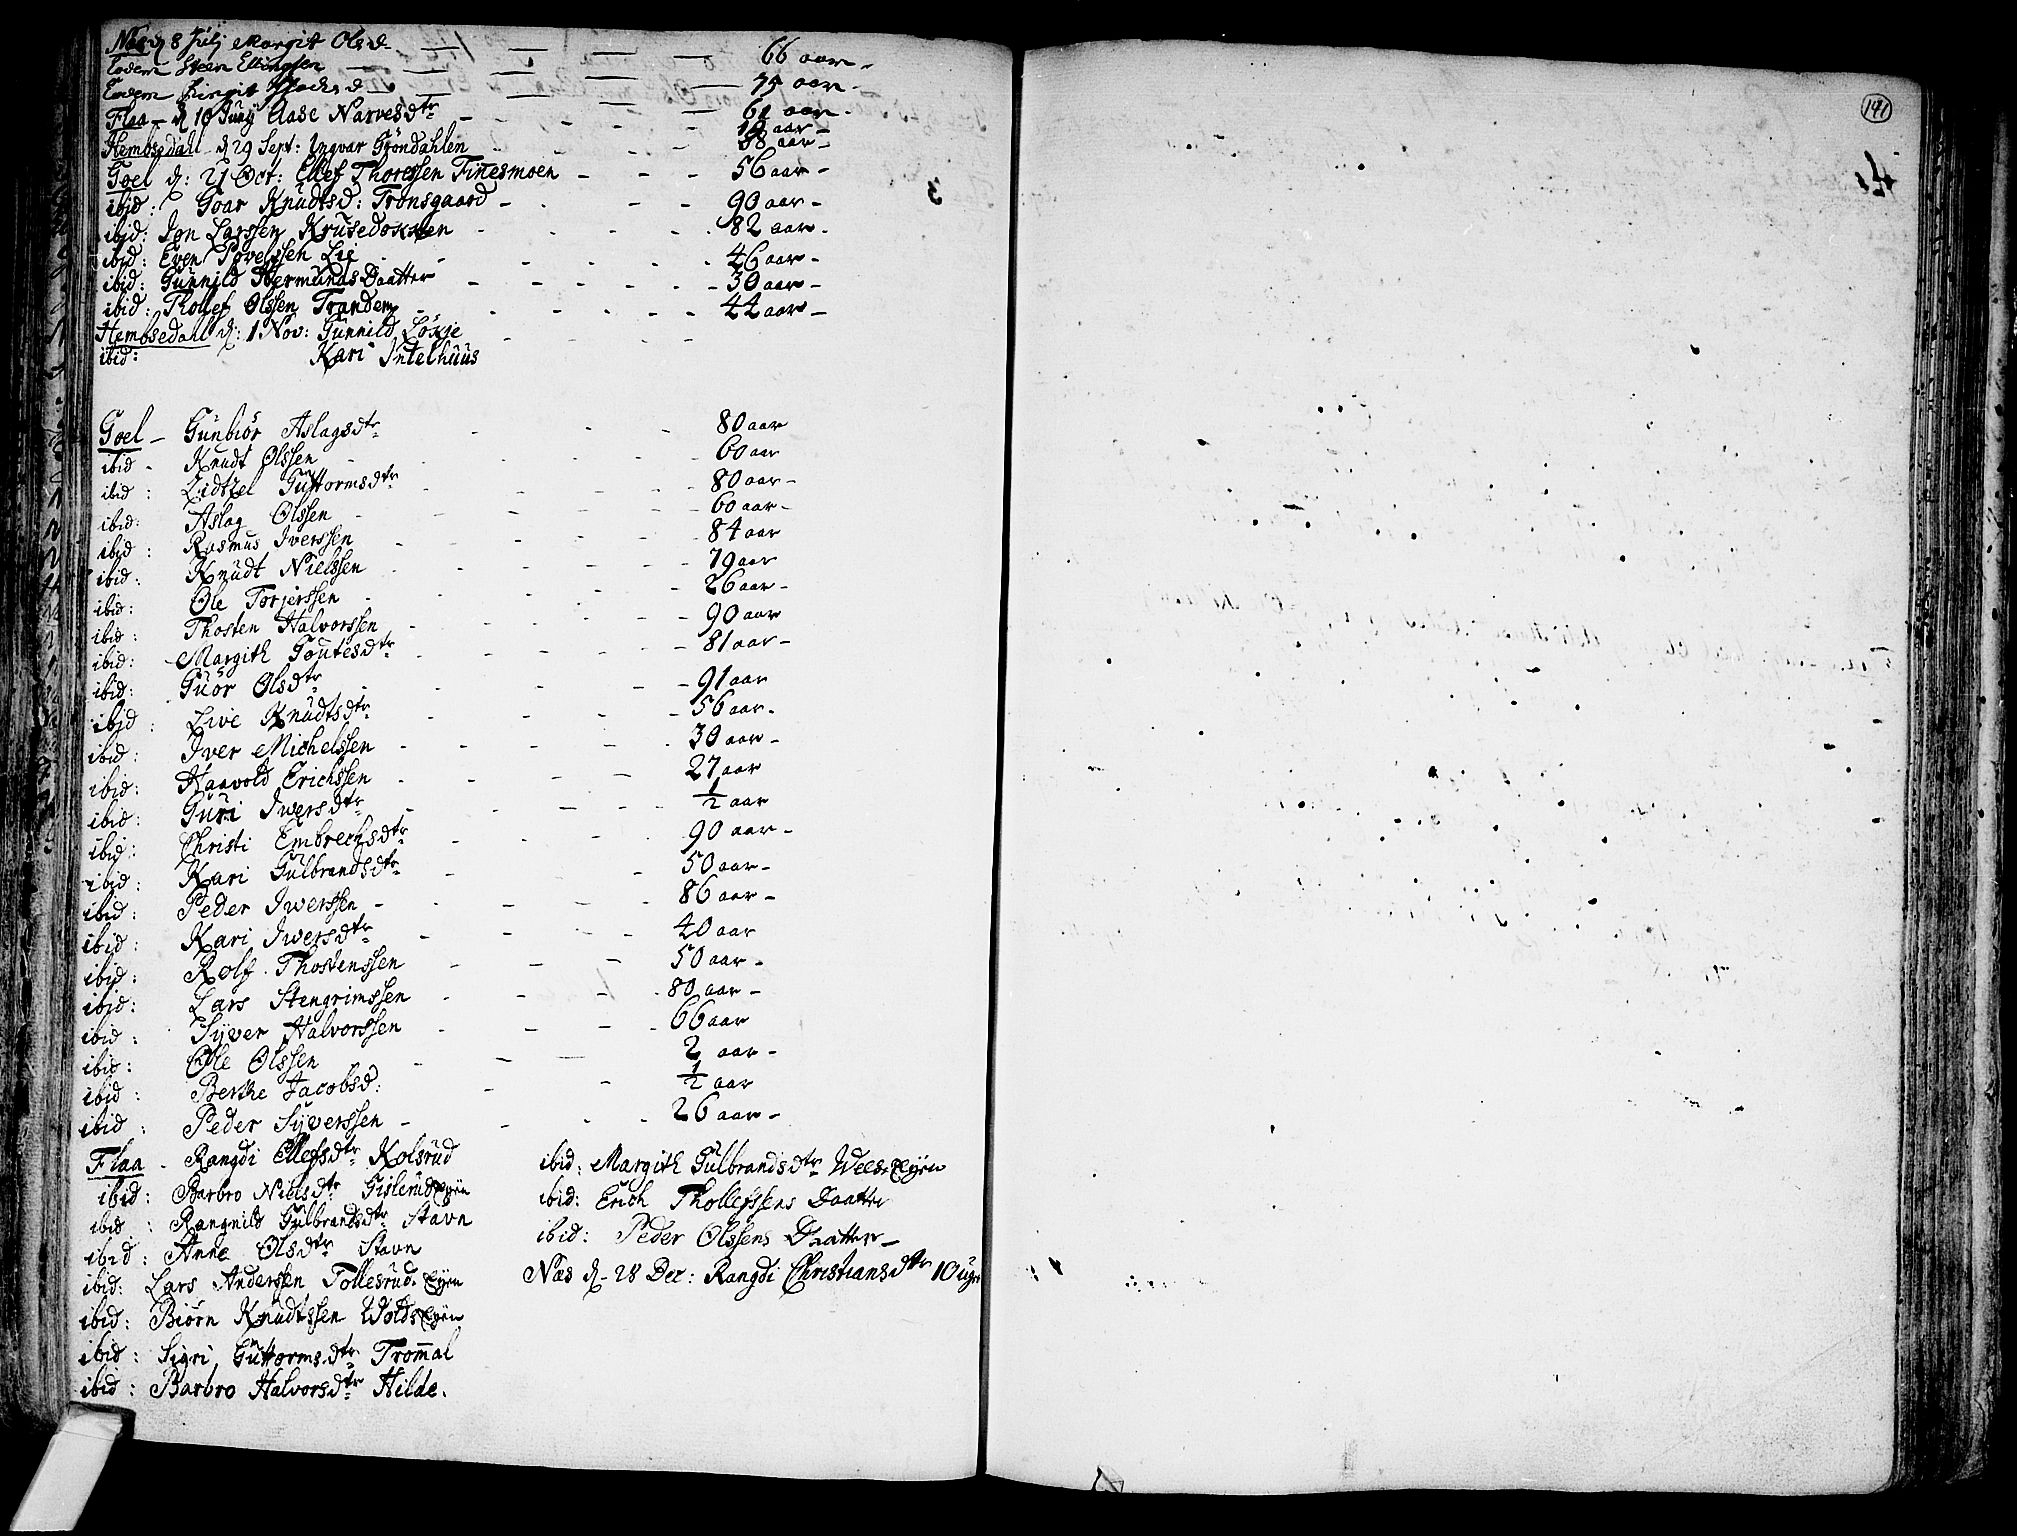 Næs d 8 Julj Margit Olsd - 66 aar -
Eodem Steen Ellingssen - 75 aar -
Eodem Birgit d - 61 aar -
Flaa - d 10 Junij Aase Narvesdtr - 10 aar -
Hembsedahl d 29 Sept: Ingvar Gröndahlen - 88 aar -
Goel d: 21 Oct: Ellef Thoressen Finesmoen - 56 aar -
ibid: Goar Knudtsd: Tronsgaard - 90 aar -
ibid: Jon Larssen Krusedokken - 82 aar -
ibid: Even Povelssen Lie - 46 aar -
ibid: Gunnild Hermunds Daatter - 30 aar -
ibid: Thollef Olssen Trandem - 44 aar -
Hembsedahl d: 1 Nov: Gunnild Lökje
ibid: Kari Intelhuus
Goel - Gunbiör Aslagsdtr - 80 aar
ibid - Knudt Olssen - 60 aar
ibid: Lidtzel Guttormsdtr - 80 aar -
ibid: Aslag Olssen - 60 aar -
ibid: Rasmus Iverssen - 84 aar
ibid: Knudt Nielssen - 79 aar
ibid: Ole Torjerssen - 26 aar -
ibid: Thosten Halvorssen - 90 aar
ibid: Margith Goutesdtr - 81 aar -
ibid: Guör Olsdtr - 91 aar
ibid: Live Knudtsdtr - 56 aar -
ibid: Iver Michelssen - 30 aar -
ibid: Haavold Erichssen - 27 aar
ibid: Guri Iwersdtr - 1/2 aar
ibid: Christi Embrechsdtr - 90 aar -
ibid: Kari Gulbrandsdtr - 50 aar -
ibid: Peder Iwerssen - 86 aar -
ibid: Kari Iwersdtr - 40 aar
ibid: Rolf Thostenssen - 50 aar -
ibid: Lars Stengrimssen - 80 aar -
ibid: Syver Halvorssen - 66 aar
ibid: Ole Olssen - 2 aar -
ibid: Berthe Jacobsd: - 1/2 aar
ibid: Peder Syverssen - 26 aar -
Flaa - Rangdi Ellefsdtr Kolsrud
ibid: Barbro Nilsdtr Gislerud Eyen
ibid: Rangnild Gulbrandsdtr Stavn
ibid: Anne Olsdtr Stavn
ibid: Lars Anderssen Tollesrud-Eyen
ibid: Biörn Knudtssen Wolds Eyen
ibid: Sigri Guttormsdtr Trommal
ibid: Barbro Halvorsdtr Hilde.
ibid: Margith Gulbrandsdtr Eyen
ibid: Erich Thollefssens Daatter
ibid: Peder Olssens Daatter -
Næs d - 28 Dec: Rangdi Christiansdtr 10 uger
141